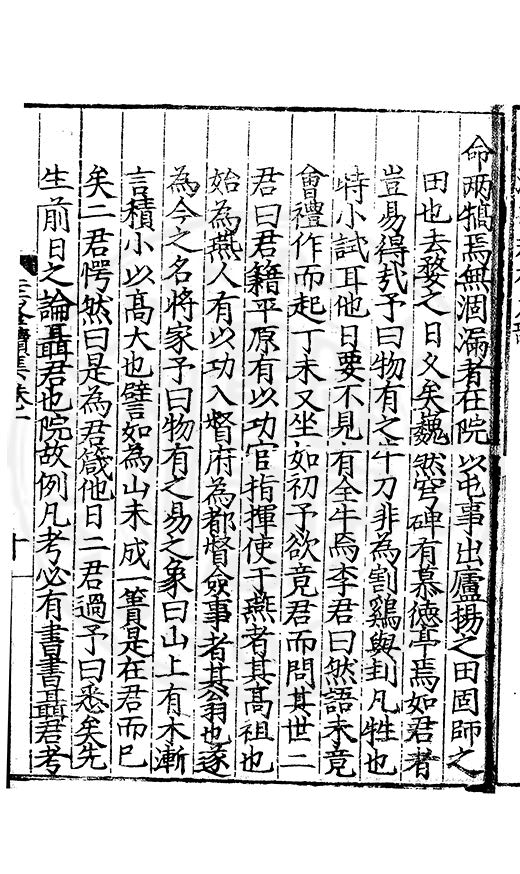 命兩犒焉無涸漏者在院以屯事出廬揚之田固師之
田也去婺之日久矣巍然穹碑有慕德亭焉如君者
豈易得哉予曰物有之牛刀非為割鷄與刲凡牲也
特小試耳他日要不見有全牛焉李君曰然語未竟
會禮作而起丁未又坐如初予欲竟君而問其世二
君曰君籍平原有以功官指揮使于燕者其高祖也
始為燕人有以功入督府為都督僉事者其翁也遂
為今之名將家予曰物有之易之象曰山上有木漸
言積小以高大也譬如為山未成一簣是在君而已
矣二君愕然曰是為君箴他日二君過予曰悉矣先
生前日之論聶君也院故例凡考必有書書聶君考